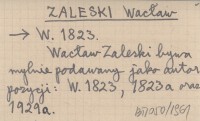 ZALESKI Wacław
→ W. 1823.
Wacław Zaleski bywa
mylnie podawany jako autor
pozycji: W. 1823, 1823a oraz
1929a.